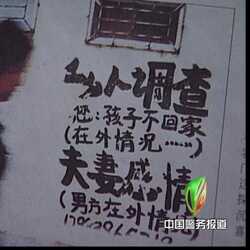 私人调查
您:孩子不回家
(在外情况……)
夫妻感情
(男方在外情
中国警务报道